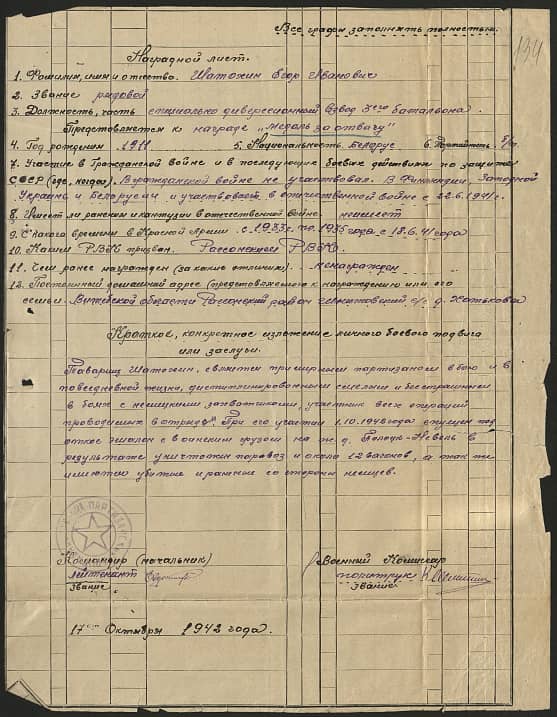 Все графы заполнять полностью.
134
Наградной лист.
1. Фамилия, имя и отчество. Шатохин Егор Иванович
2. Звание рядовой
3. Должность, часть специально диверсионный взвод 3его баталиона.
Представляется к награде "медаль за отвагу"
4. Год рождения 1911 5. Национальность Беларус 6. Партийность б/п
7. Участие в Гражданской войне и в последующих боевых действиях по защите
СССР (где, когда). В гражданской войне не участвовал. В Финляндии, Западной
Украины и Беларусии и участвовает в отечественной войне с 22.6.1941 г.
8. Имеет ли ранения и контузии в отечественной войне. неимеет
9. С какого времени в Красной Армии. с 1933 г. по 1935 года и с 18.6.41 года
10. Каким РВК призван. Россонским РВКа.
11. Чем ранее награжден (за какие отличия). ненагражден
12. Постоянный домашний адрес (представляемого к награждению или его
семьи. Витебской области Россонский район с/с д. Хотьково
Краткое, конкретное изложение личного боевого подвига
или заслуги.
Товарищ Шатохин, является примерным партизаном в бою и в
повседневной жизни, дисциплинированным смелым и бесстрашным
в боях с немецкими захватчиками, участник всех операций
проводимых в отряде. При его участии 1.10.1942 года спущен под
откос эшелон с воинским грузом на ж.д. Полоцк-Невель в
результате уничтожен паровоз и около 12 вагонов, а так же
имеются убитые и раненые со стороны немцев.
Командир (начальник) Военный Комиссар
лейтенант политрук
звание. звание
17го Октября 1942 года.